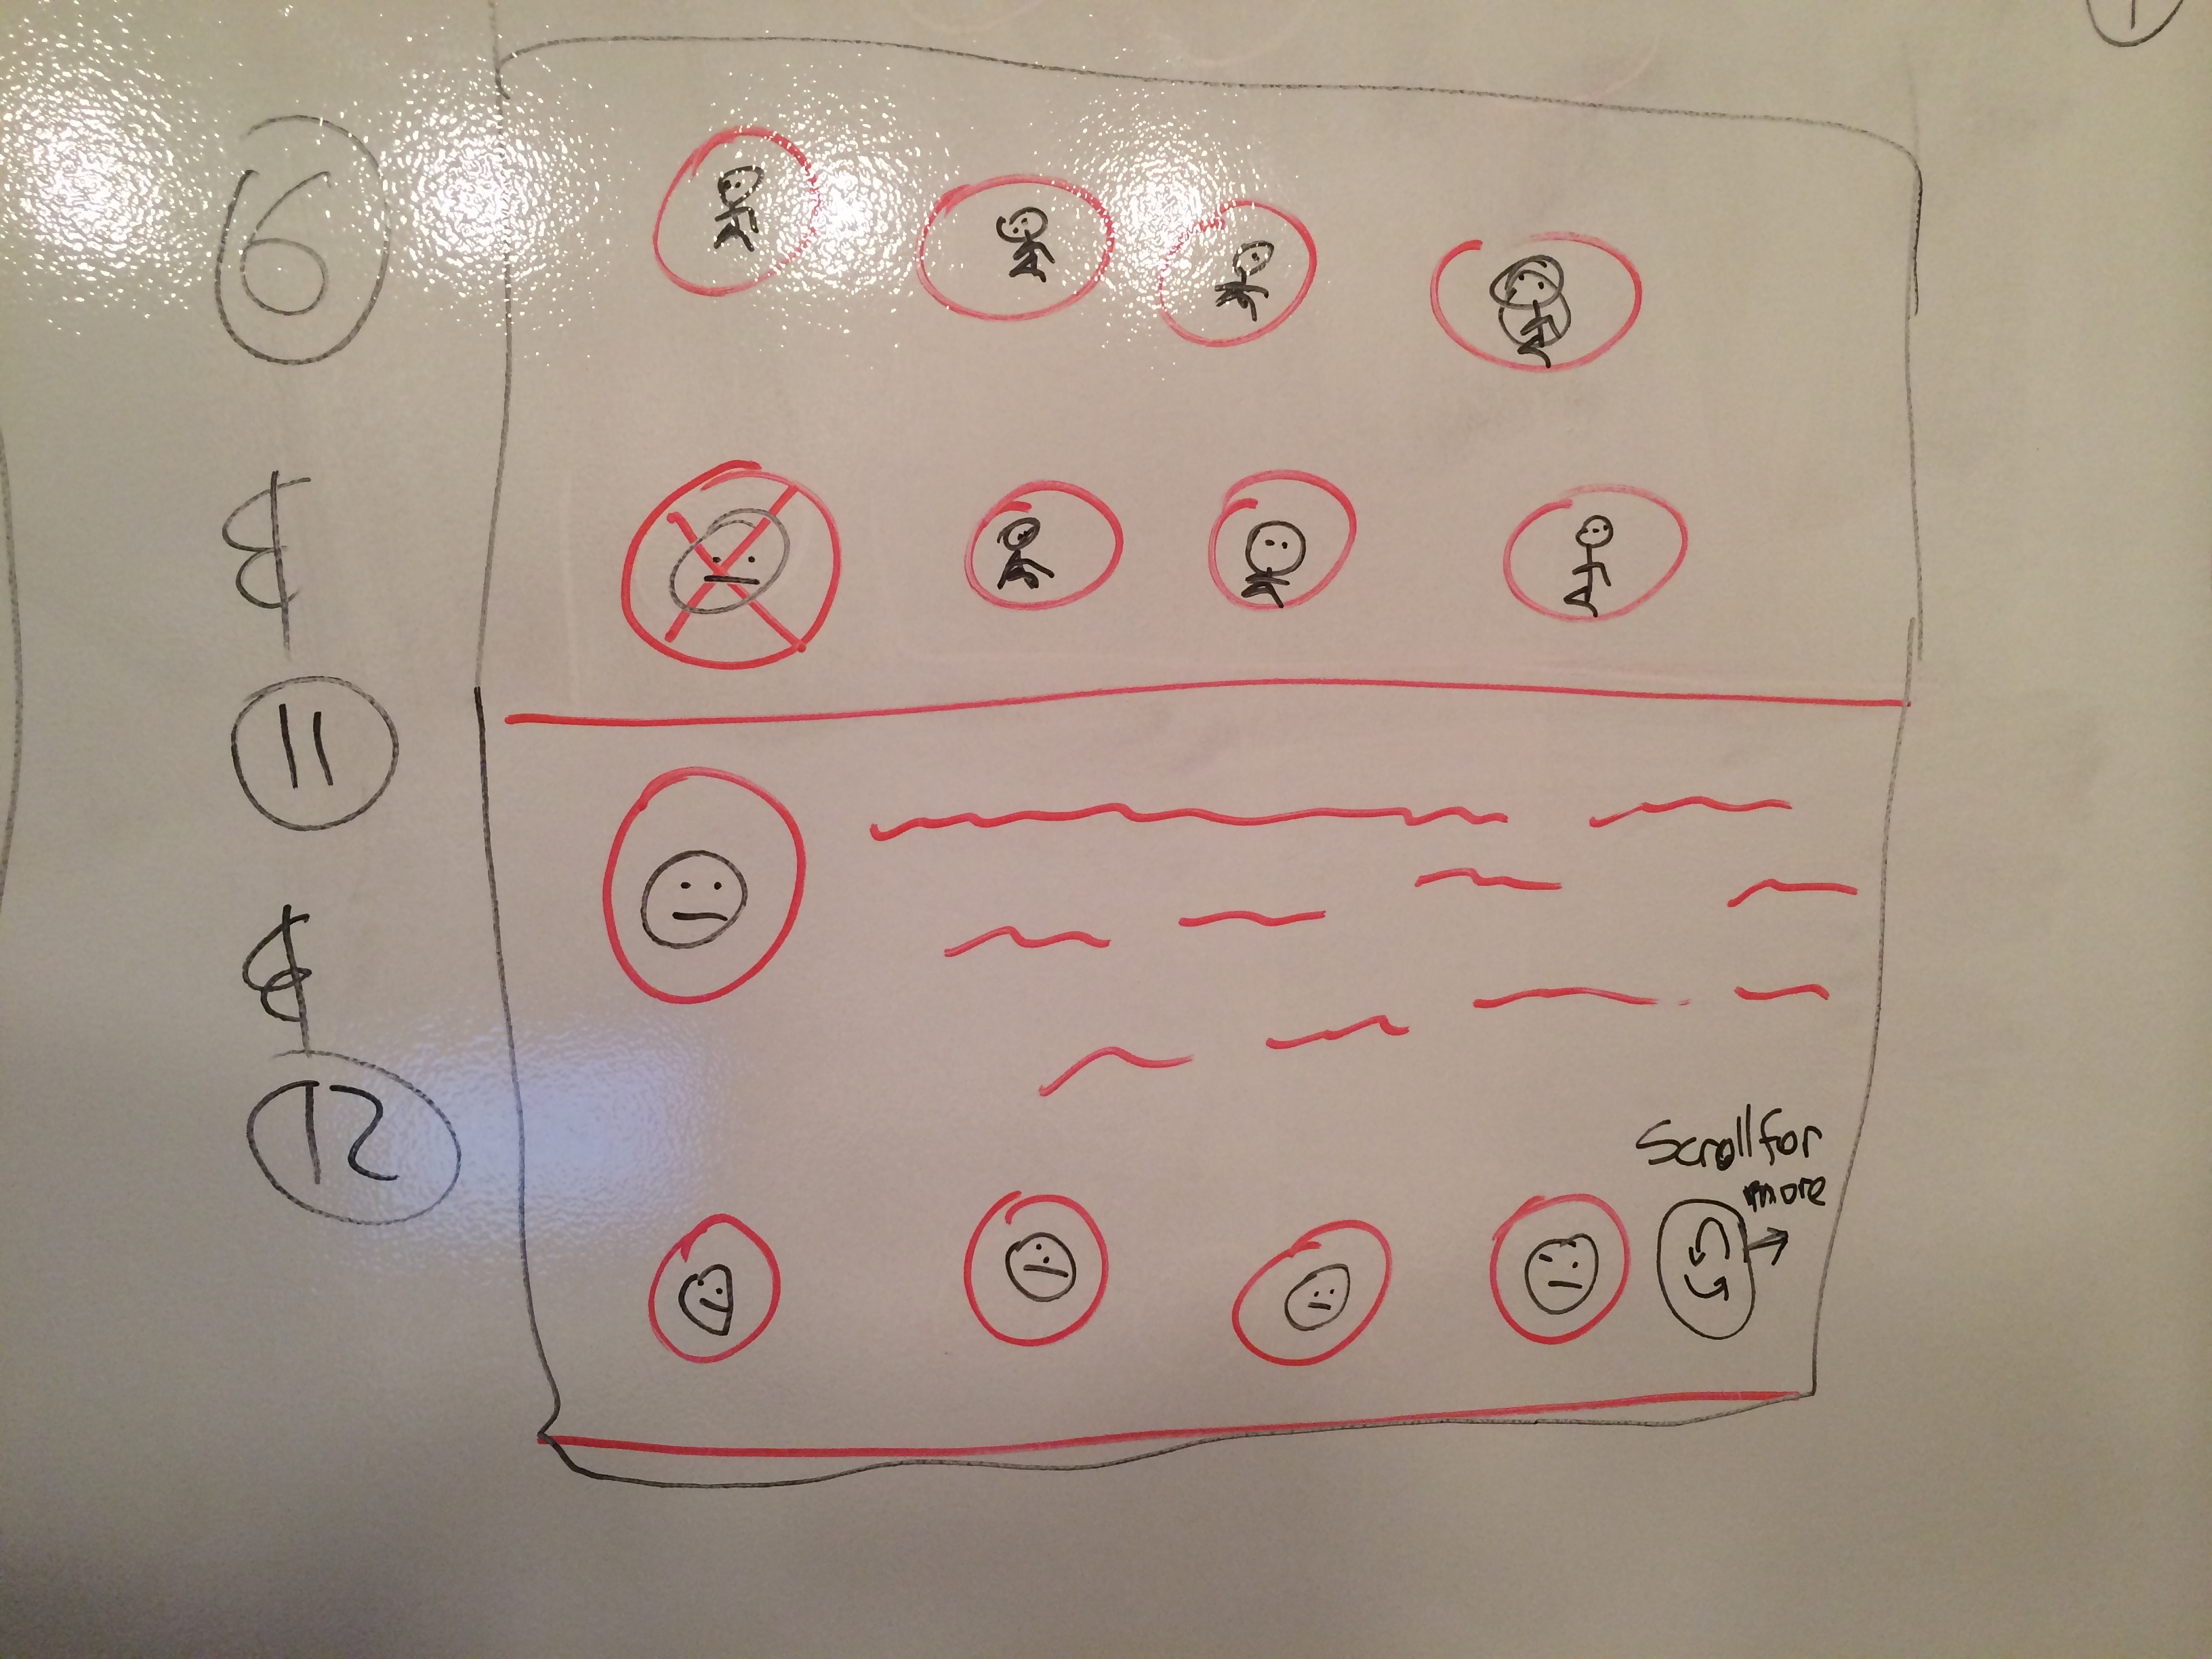 6
&
11
&
12
Scroll for
more